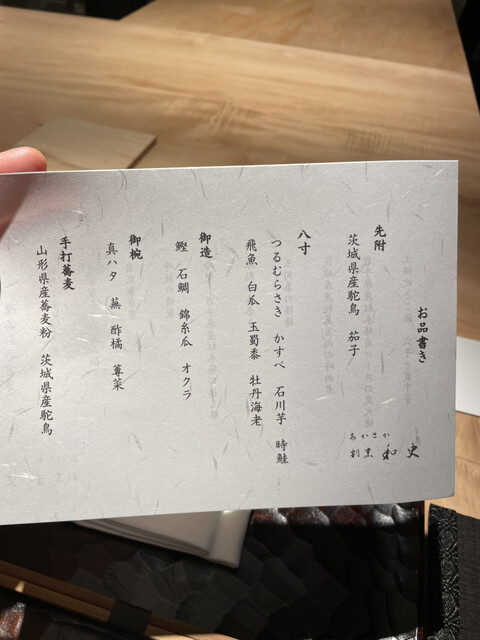 お品書き
あかさか
割烹 和史
先附
茨城県産駝鳥 茄子
八寸
つるむらさき かすべ 石川芋 時鮭
飛魚 白瓜 玉蜀黍 牡丹海老
御造
鰹 石鯛 錦糸瓜 オクラ
御椀
真ハタ 蕪 酢橘 蓴菜
手打蕎麦
山形県産蕎麦粉 茨城県産駝鳥